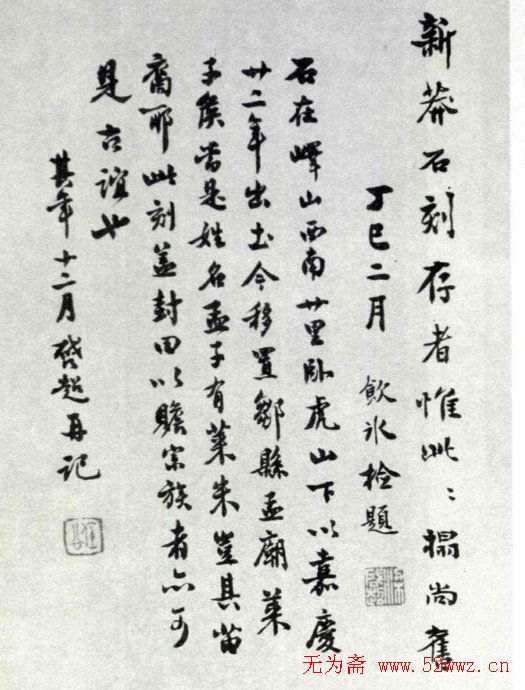 新莽石刻存者惟此〻搨尚舊
丁巳二月 飲冰檢題
石在嶧山西南廿里臥虎山下以嘉慶
廿二年出土今移置鄒縣孟廟萊
子侯當是姓名孟子有萊朱豈其苗
裔耶此刻蓋封田以贍宗族者亦可
見古誼也
其年十二月啓超再記
无为斋 www.52wwz.cn